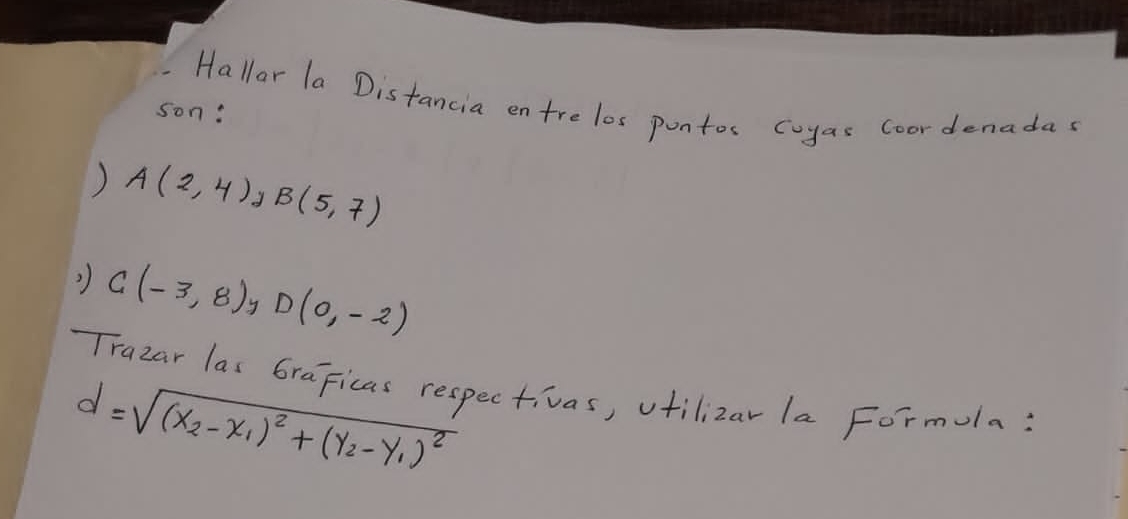 .- Hallar la Distancia entre los puntos cuyas Coordenadas
son:
) A(2,4) y B(5,7)
) C(-3,8) y D(0,-2)
Trazar las Gráficas respectívas, utilizar la Fórmula:
d=√(X₂-X₁)²+(Y₂-Y₁)²